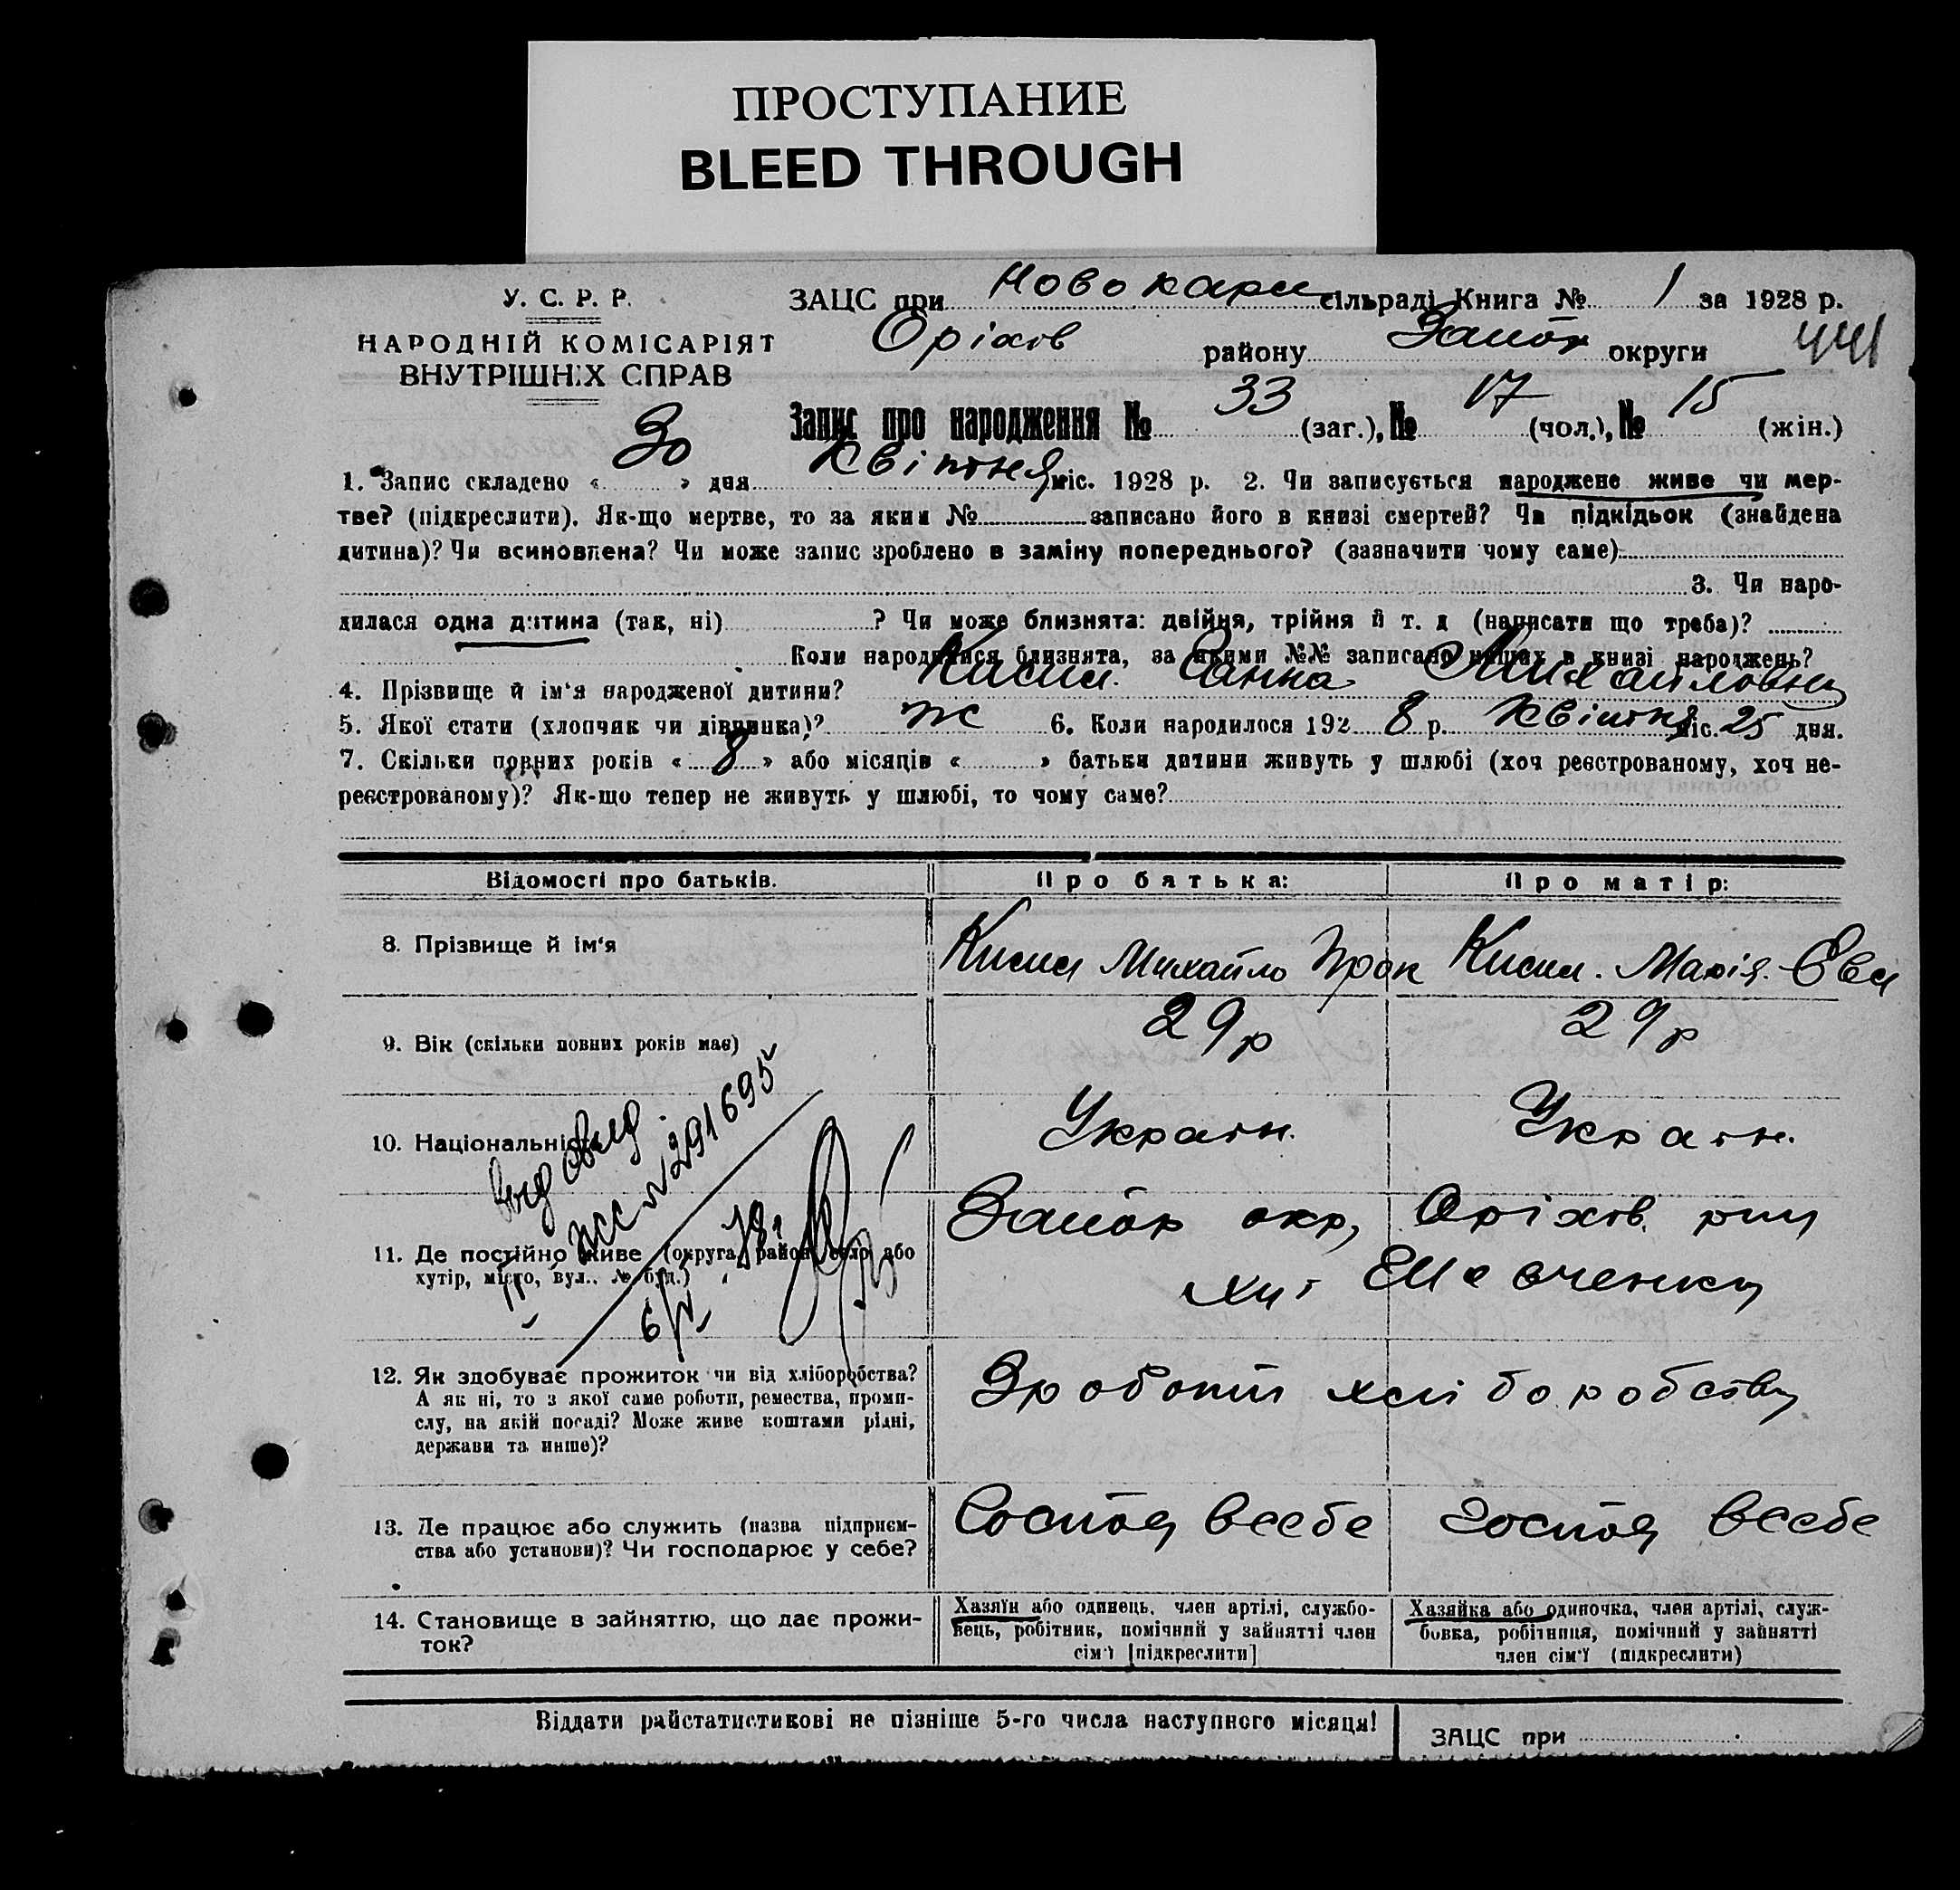 ПРОСТУПАНИЕ
BLEED THROUGH
У. С. Р. Р.
НАРОДНІЙ КОМІСАРІЯТ
ВНУТРІШНІХ СПРАВ
ЗАЦС при Новокарл сільраді Книга № 1 за 1928 р.
Оріхів району Запор округи 441
Запис про народження № 33 (заг.), № 17 (чол.), № 15 (жін.)
1. Запис складено « 30 » дня Квітня міс. 1928 р. 2. Чи записується народжене живе чи мер-
тве? (підкреслити). Як-що мертве, то за яким № записано його в книзі смертей? Чи підкідьок (знайдена
дитина)? Чи всиновлена? Чи може запис зроблено в заміну попереднього? (зазначити чому саме)
3. Чи наро-
дилася одна дитина (так, ні) ? Чи може близнята: двійня, трійня й т. д (написати що треба)?
Коли народилися близнята, за якими №№ записано инших в книзі народжень?
4. Прізвище й ім'я народженої дитини? Кисил. Ганна Михайловна
5. Якої стати (хлопчик чи дівчинка)? ж 6. Коли народилося 192 8 р. Квітня міс. 25 дня.
7. Скільки повних років « 8 » або місяців « » батьки дитини живуть у шлюбі (хоч реєстрованому, хоч не-
реєстрованому)? Як-що тепер не живуть у шлюбі, то чому саме?
Відомості про батьків. Про батька: Про матір:
8. Прізвище й ім'я Кисил Михайло Прок Кисил. Марія. Евд
9. Вік (скільки повних років має) 29 р 29 р
10. Національність Україн. Україн.
№ 291695
11. Де постійно живе (округа, район, село або
хутір, місто, вул., № буд.)
Запор окр, Оріхів. рну
хут Шевченка
12. Як здобуває прожиток чи від хліборобства?
А як ні, то з якої саме роботи, ремества, проми-
слу, на якій посаді? Може живе коштами рідні,
держави та инше)?
Зроботи хліборобства
13. Де працює або служить (назва підприєм-
ства або установи)? Чи господарює у себе?
Господ всебе Господ всебе
14. Становище в зайняттю, що дає прожи-
ток?
Хазяїн або одинець, член артілі, службо-
вець, робітник, помічний у зайнятті член
сім'ї [підкреслити]
Хазяйка або одиночка, член артілі, служ-
бовка, робітниця, помічний у зайнятті
член сім'ї (підкреслити)
Віддати райстатистикові не пізніше 5-го числа наступного місяця!
ЗАЦС при